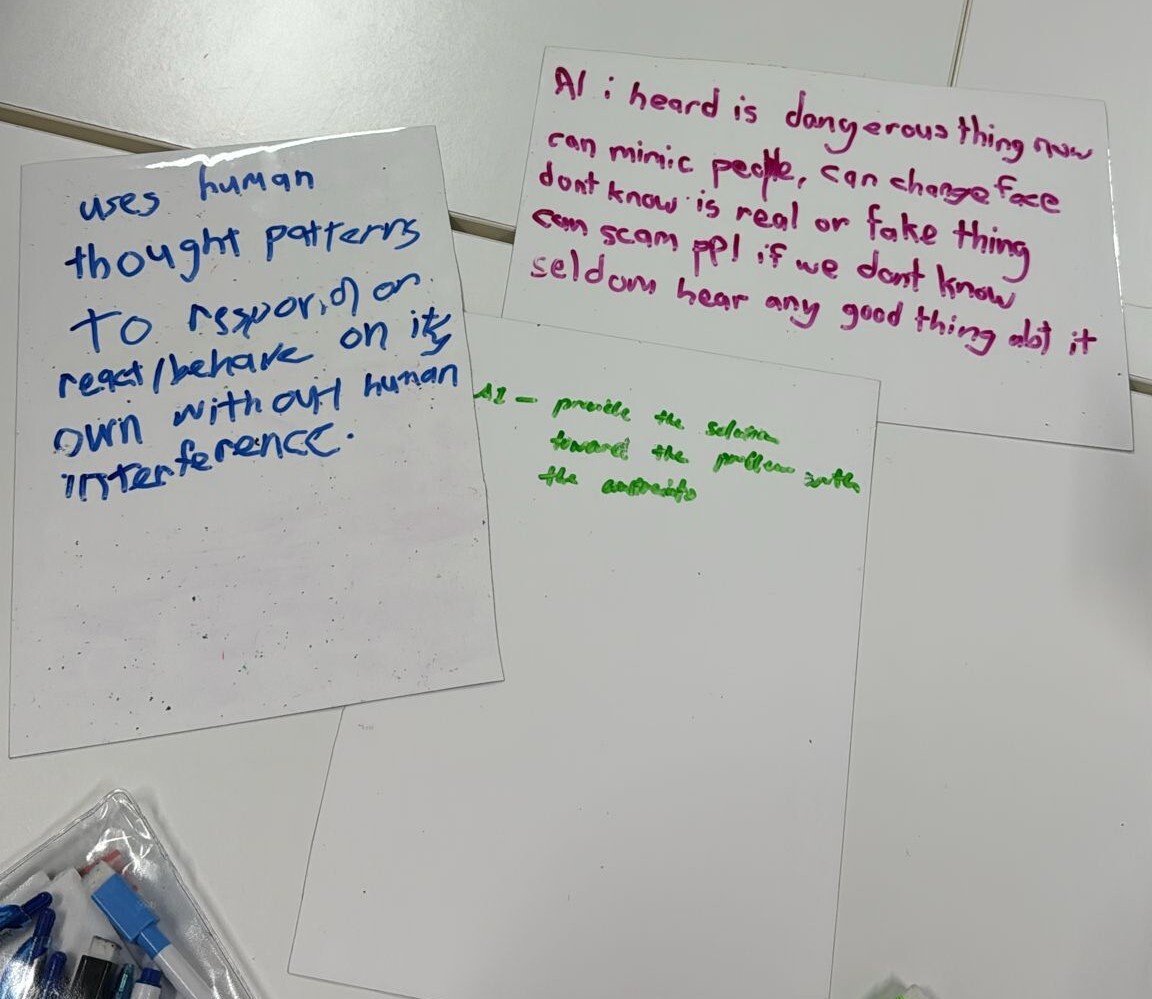 uses human
thought patterns
to respond or
react/behave on its
own without human
interference.
AI i heard is dangerous thing now
can mimic people, can change face
dont know is real or fake thing
can scam ppl if we dont know
seldom hear any good thing abt it
AI - provide the solution
toward the problem with
the